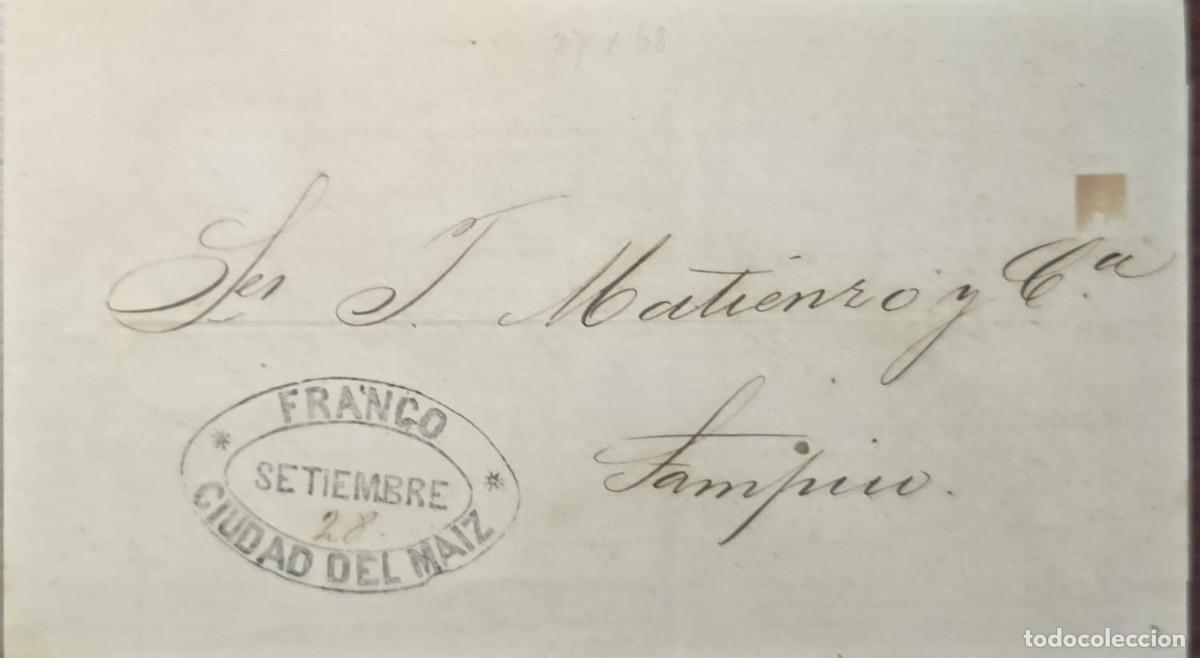 27 x 68
Ses J. Matienzo y C.ª
Tampico.
FRANCO
SETIEMBRE
28.
CIUDAD DEL MAIZ
todocoleccion